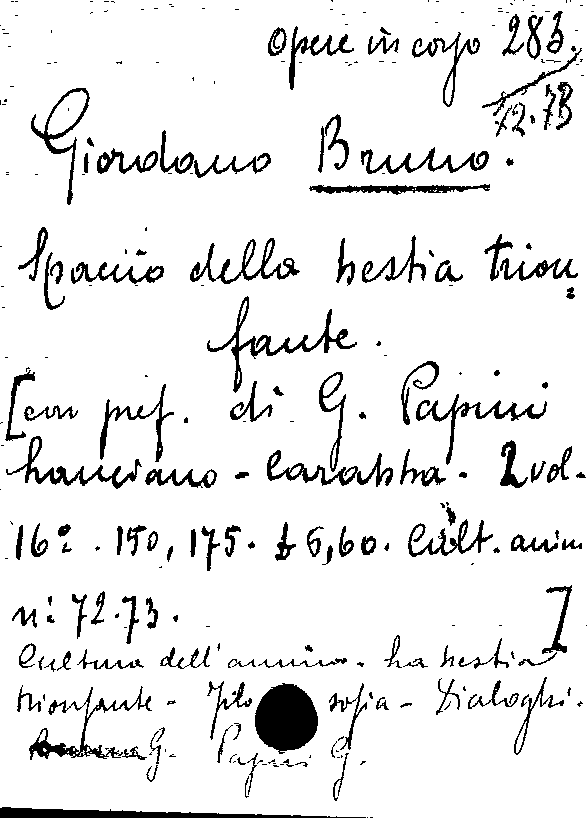 Opere in corso 283.
72.73
Giordano Bruno.
Spaccio della bestia trion=
fante.
[con pref. di G. Papini
Lanciano - Carabba - 2 vol.
16º. 150, 175. £ 5,60. Cult. anim
nº 72.73. I
Cultura dell'anima - La bestia
trionfante - Filosofia - Dialoghi.
G. Papini G.